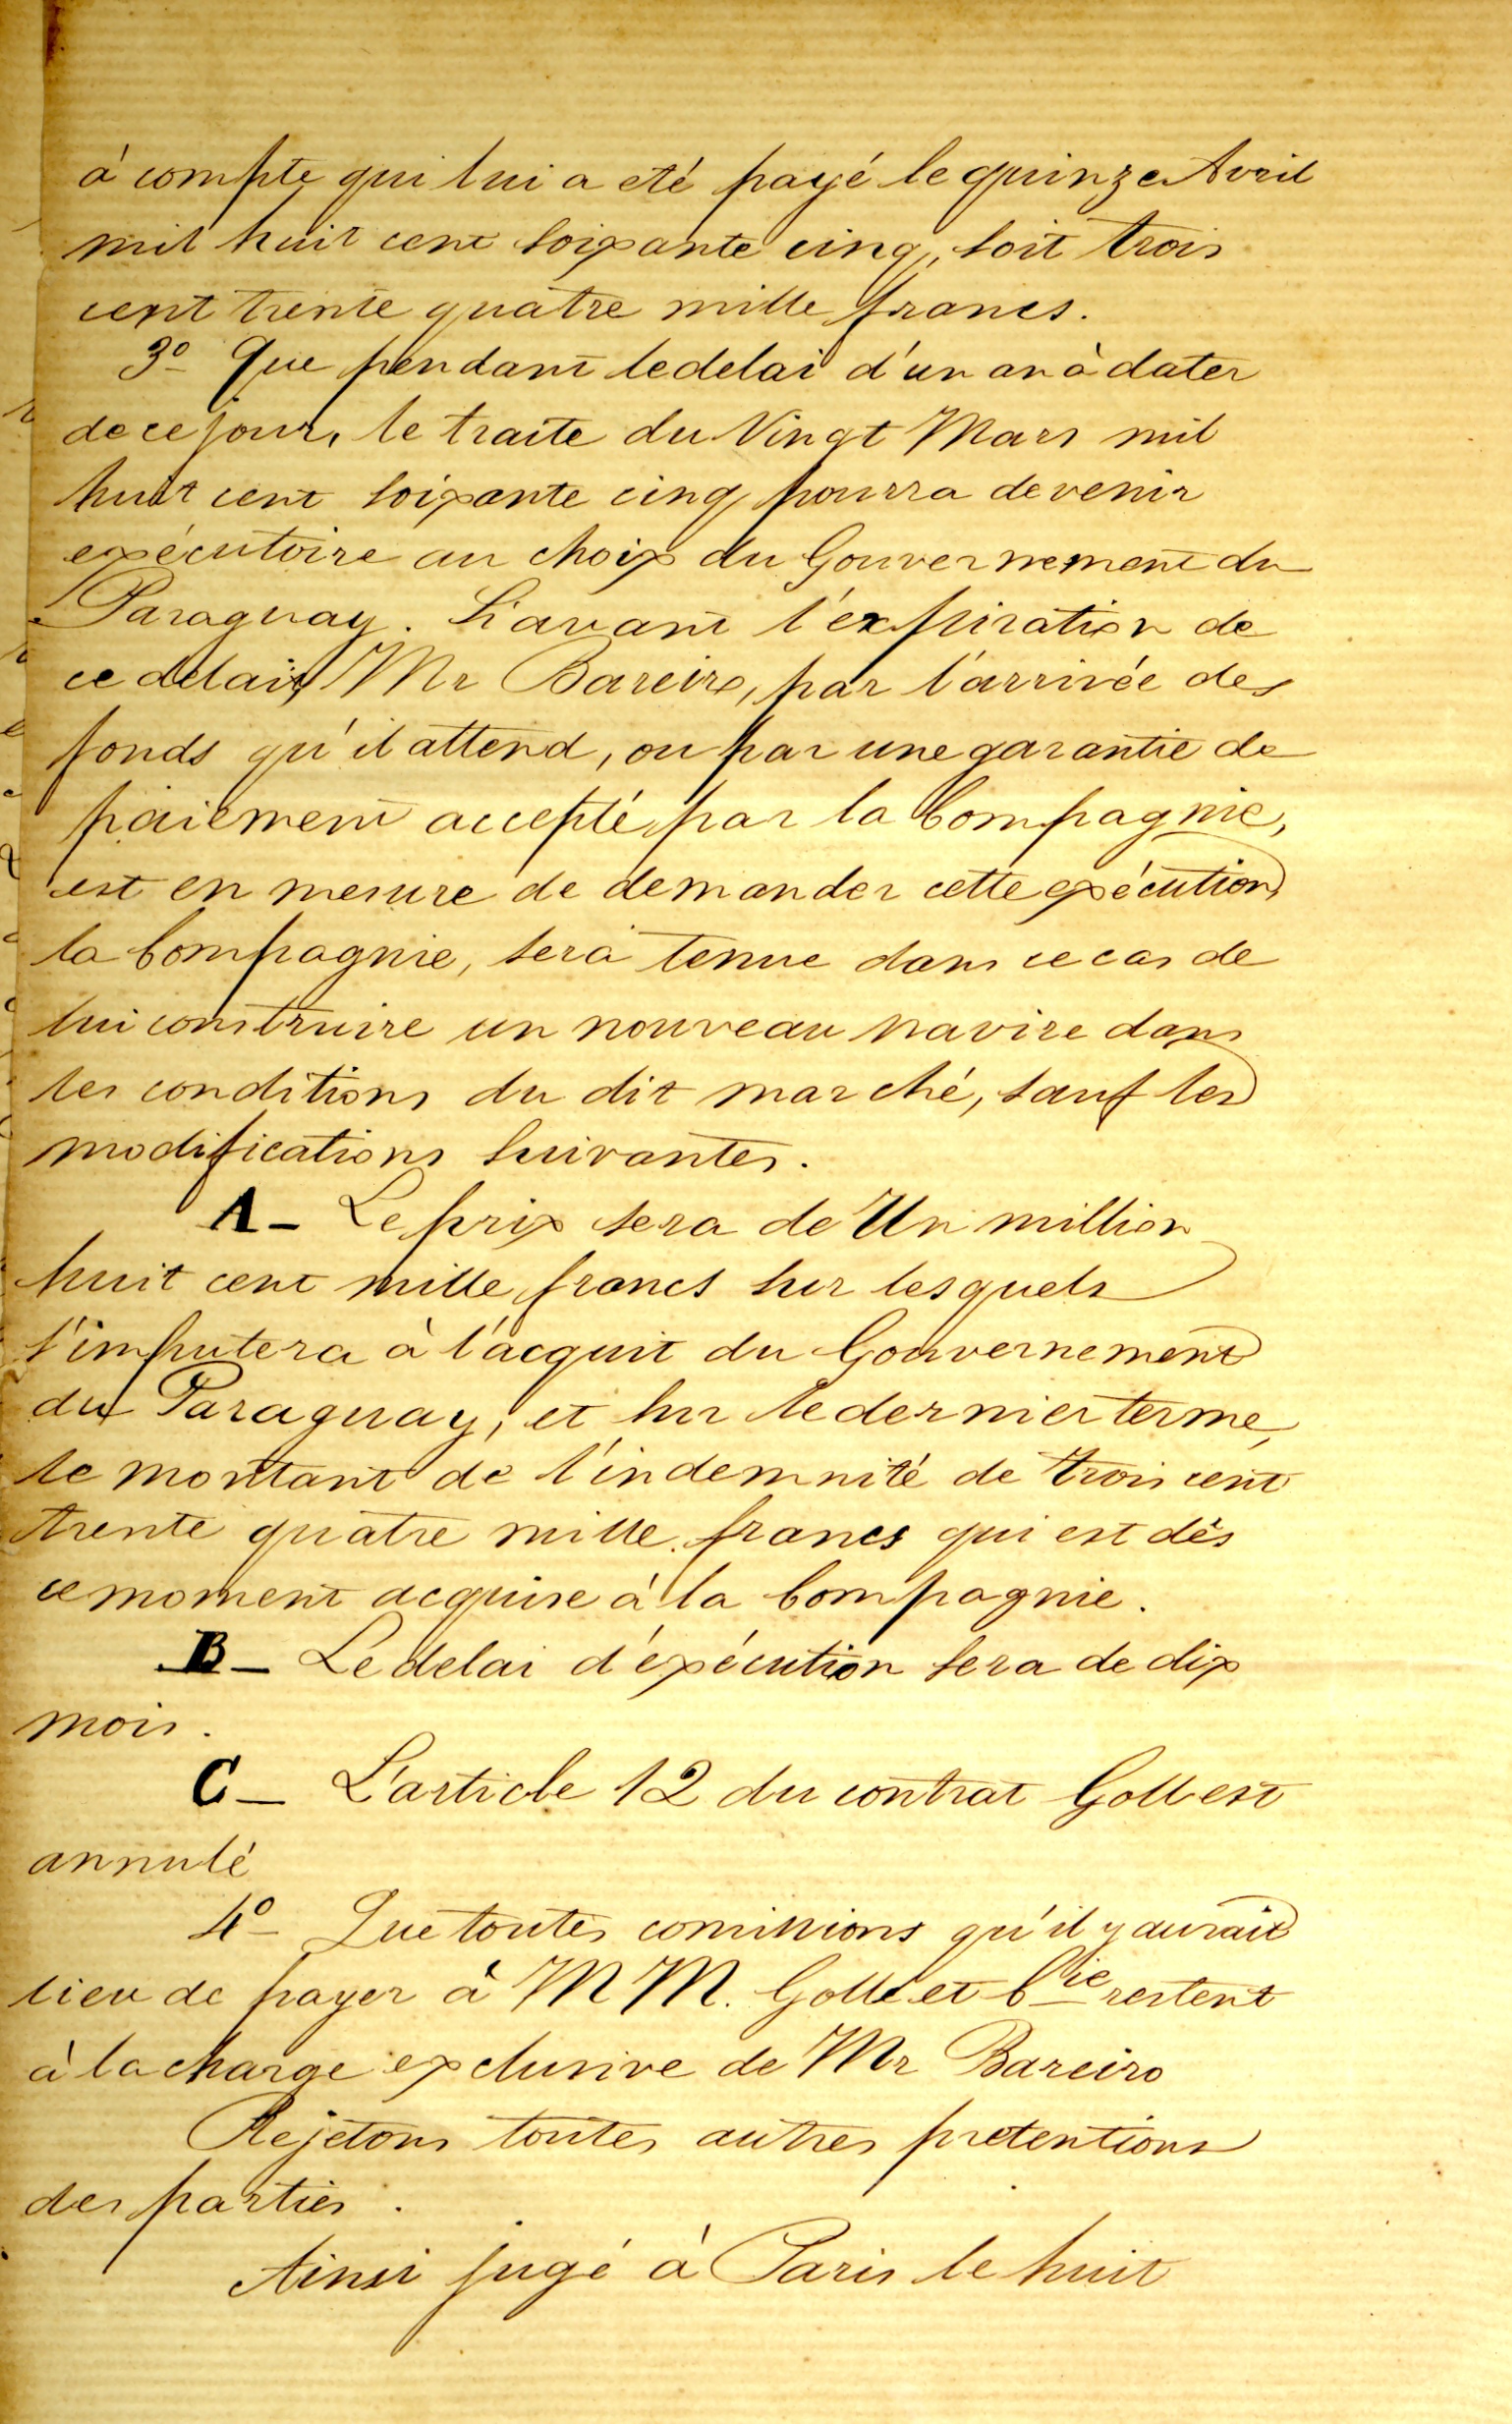 à compte qui lui a été payé le quinze Avril
mil huit cent soixante cinq, soit trois
cent trente quatre mille francs.
3º Que pendant le delai d'un an à dater
de ce jour, le traite du Vingt Mars mil
huit cent soixante cinq pourra devenir
exécutoire au choix du Gouvernement du
Paraguay. Si avant l'expiration de
ce delai, Mr Bareiro, par l'arrivée des
fonds qu'il attend, ou par une garantie de
paiement accepté par la Compagnie,
est en mesure de demander cette exécution,
la Compagnie, sera tenue dans ce cas de
lui construire un nouveau navire dans
les conditions du dit marché, sauf les
modifications suivantes.
A_ Le prix sera de Un million
huit cent mille francs sur lesquels
s'imputera à l'acquit du Gouvernement
du Paraguay, et sur le dernier terme,
le montant de l'indemnité de trois cent
trente quatre mille francs qui est dès
ce moment acquise à la Compagnie.
B_ Le delai d'éxécution sera de dix
mois.
C_ L'article 12 du contrat Goll est
annulé
4º Que toutes comissions qu'il y aurait
lieu de payer à MM. Golle et Cie restent
à la charge exclusive de Mr Bareiro
Rejetons toutes autres pretentions
des parties.
Ainsi jugé à Paris le huit